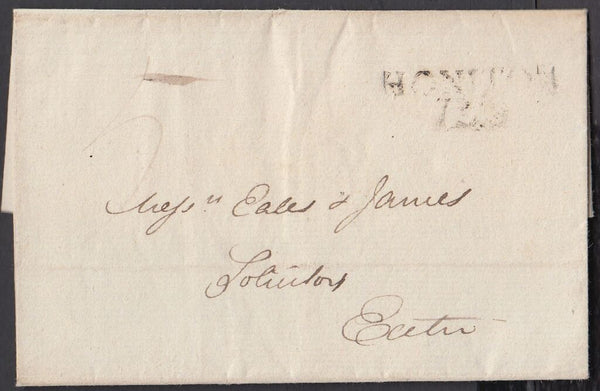 HONITON
Messrs Eales & James
Solicitors
Exeter